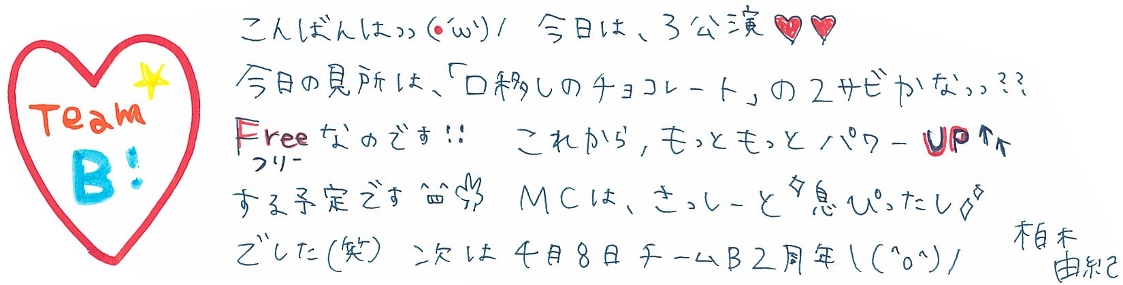 Team
B!
こんばんはっっ(●´ω`)/ 今日は、3公演♥♥
今日の見所は、「口移しのチョコレート」の2サビかなっっ??
Freeなのです!! これから,もっともっとパワーUP↑↑
フリー
する予定です^^ MCは、さっしーと息ぴったし
でした(笑) 次は4月8日チームB2周年\(^o^)/
柏木
由紀